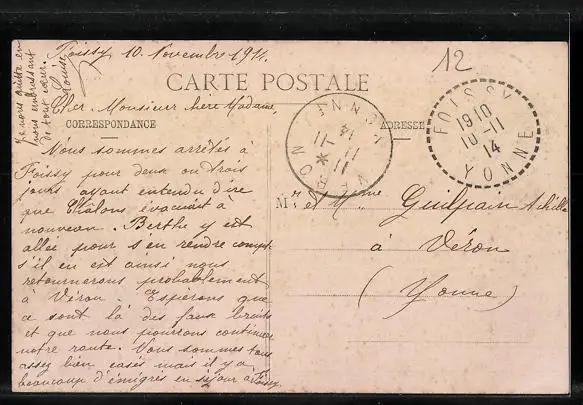 Foissy 10 Novembre 1914
12
CARTE POSTALE
Cher Monsieur chère Madame,
CORRESPONDANCE
ADRESSE
Nous sommes arrêtés à
Foissy pour deux ou trois
jours ayant entendu dire
que Châlons évacuait à
nouveau. Berthe y est
allée pour s'en rendre compte
s'il en est ainsi nous
retournerons probablement
à Véron. Espérons que
ce sont là des faux bruits
et que nous pourrons continuer
notre route. Vous sommes tous
assez bien casés mais il y a
beaucoup d'émigrés en séjour à Foissy
Je vous quitte en
vous embrassant
de tout cœur.
Louise
VERON
YONNE
11 - 11
14
FOISSY
1910
10 - 11
14
YONNE
Mr et Mme Guilpain Achille
à Véron
(Yonne)